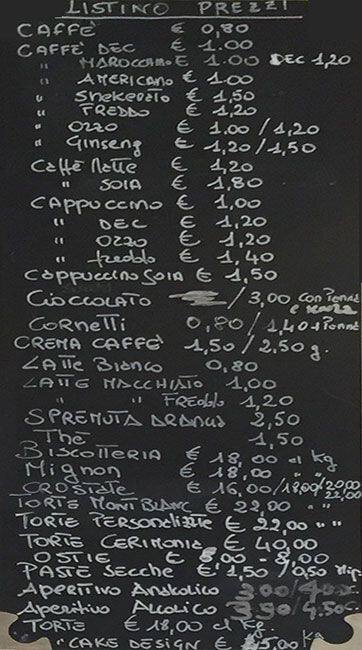 LISTINO PREZZI
CAFFÈ € 0,80
CAFFÈ DEC € 1.00
" MAROCCHINO € 1.00 DEC 1,20
" AMERICANO € 1.00
" Shekerato € 1,50
" FREDDO € 1,20
" ORZO € 1,00 / 1,20
" Ginseng € 1,20 / 1,50
Caffè latte € 1,20
" SOIA € 1,80
CAPPUCCINO € 1,00
" DEC € 1,20
" ORZO € 1,20
" freddo € 1,40
CAPPUCCINO SOIA € 1,50
CIOCCOLATO / 3,00 con PANNA e senza
CORNETTI 0,80 / 1,40 + PANNA
CREMA CAFFÈ 1,50 / 2,50 g.
LATTE BIANCO 0,80
LATTE MACCHIATO 1,00
" " FREDDO 1,20
SPREMUTA ARANCIA 2,50
The 1,50
BISCOTTERIA € 18,00 al Kg
Mignon € 18,00 " "
CROSTATE € 16,00 / 18,00 / 20,00 22,00
TORTE MONT BIANC € 22,00 " "
TORTE PERSONALIZZATE € 22,00 " "
TORTE CERIMONIA € 40,00
OSTIE € - 8,00
PASTE SECCHE € 1,50 / 0,50
Aperitivo Analcolico 3.00 / 4.00
Aperitivo Alcolico 3.50 / 4.50 €
TORTE € 18,00 al Kg.
" CAKE DESIGN € 5,00 Kg